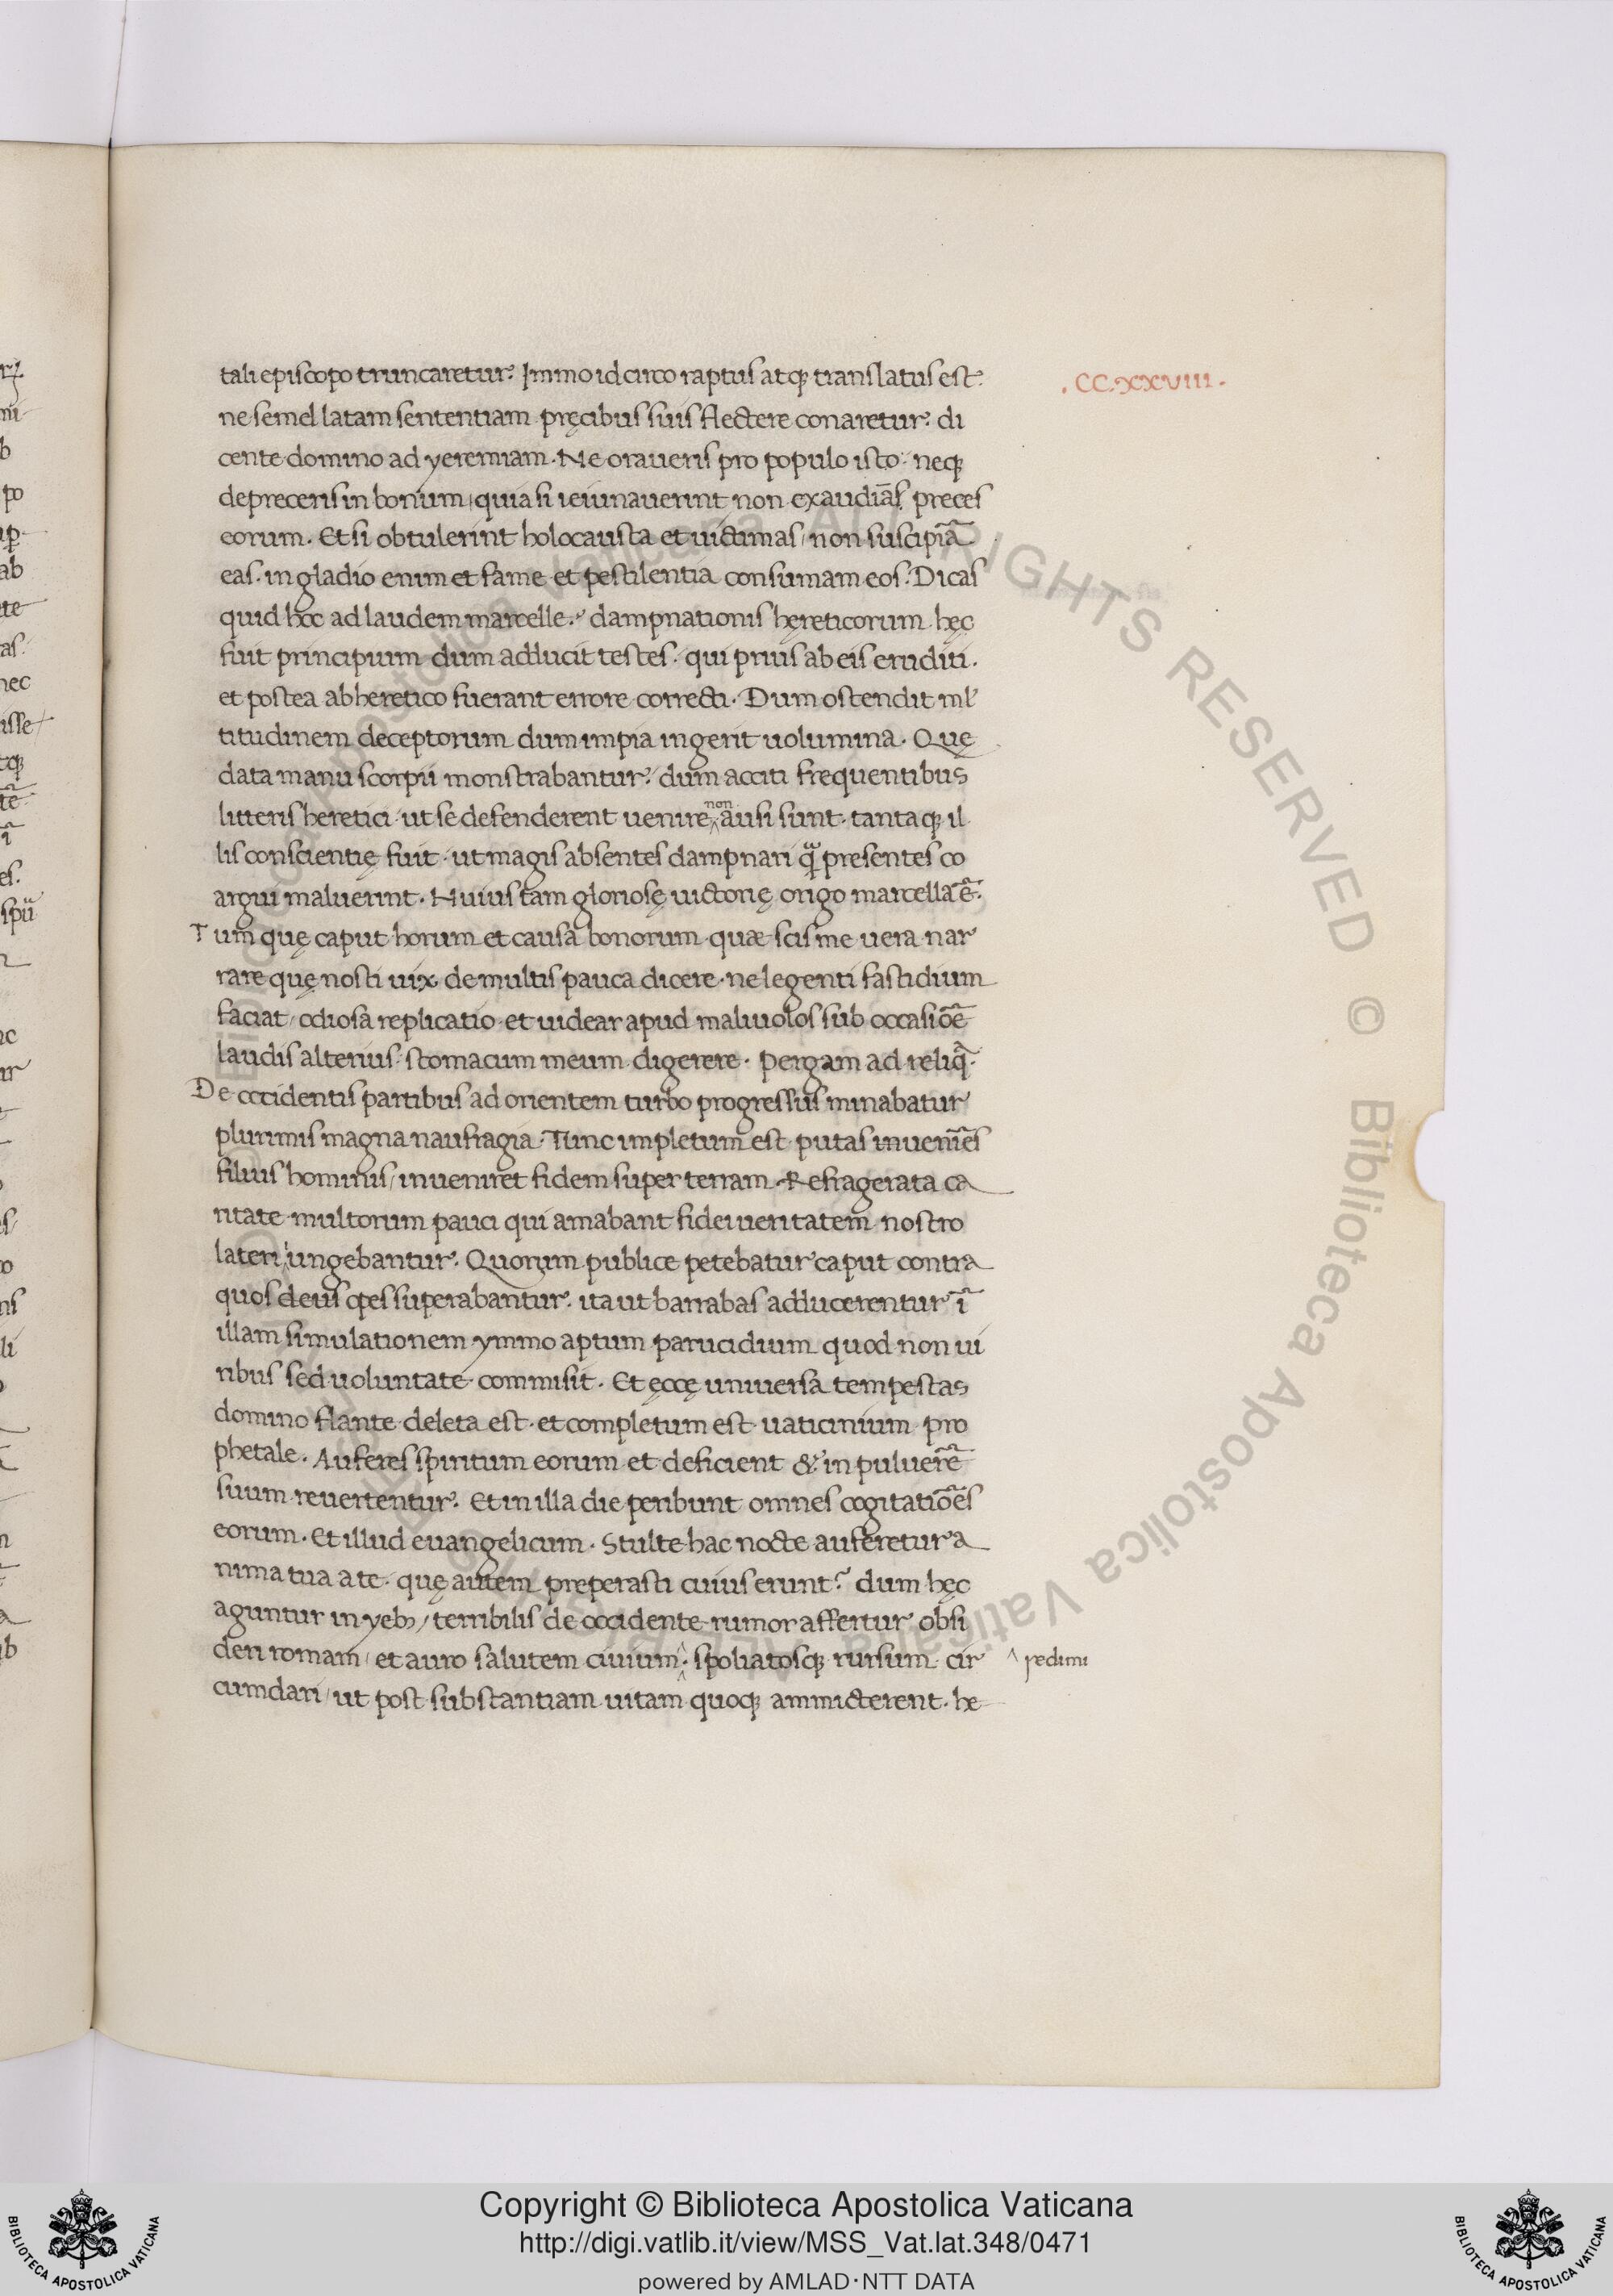 .CC.XXVIII.
tali episcopo truncaretur. Immo idcirco raptus atq; translatus est.
ne semel latam sententiam pręcibus suis flectere conaretur. di
cente domino ad yeremiam. Ne oraueris pro populo isto. neq;
depreceris in bonum, quia si ieiunauerint non exaudiā preces
eorum. Et si obtulerint holocausta et uictimas, non suscipiā
eas. in gladio enim et fame et pestilentia consumam eos. Dicas
quid hoc ad laudem marcelle. dampnationis hęreticorum hęc
fuit principium dum adducit testes. qui prius ab eis eruditi.
et postea ab heretico fuerant errore correcti. Dum ostendit ml'
titudinem deceptorum dum impia ingerit uolumina. Quę
data manu scorpii monstrabantur. dum acciti frequentibus
litteris heretici ut se defenderent uenire non ausi sunt. tantaq; il
lis conscientię fuit. ut magis absentes dampnari q̃ presentes co
argui maluerint. Huius tam gloriosę uictorię origo marcella ē.
Tum quę caput horum et causa bonorum quæ scis me uera nar
rare quę nosti uix de multis pauca dicere. ne legenti fastidium
faciat, odiosa replicatio et uidear apud maliuolos sub occasiōe
laudis alterius stomacum meum digerere. Pergam ad reliq̄.
De occidentis partibus ad orientem turbo progressus minabatur
plurimis magna naufragia. Tunc impletum est putas inueniēs
filius hominis, inueniret fidem super terram. Refragerata ca
ritate multorum pauci qui amabant fidei ueritatem nostro
lateri iungebantur. Quorum publice petebatur caput contra
quos deus opes superabantur. ita ut barrabas adducerentur ī
illam simulationem ymmo aptum paricidium quod non ui
ribus sed uoluntate commisit. Et ęccę uniuersa tempestas
domino flante deleta est. et completum est uaticinium pro
phetale. Auferes spiritum eorum et deficient & in puluerē
suum reuertentur. Et in illa die peribunt omnes cogitatiōes
eorum. Et illud euangelicum. Stulte hac nocte auferetur a
nima tua a te. quę autem preperasti cuius erunt? dum hęc
aguntur in yeb, terribilis de occidente rumor affertur obsi
deri romam, et auro salutem ciuium. spoliatosq; rursum cir
^ redimi
cumdari, ut post substantiam uitam quoq; ammicterent. he
Copyright © Biblioteca Apostolica Vaticana
http://digi.vatlib.it/view/MSS_Vat.lat.348/0471
powered by AMLAD·NTT DATA